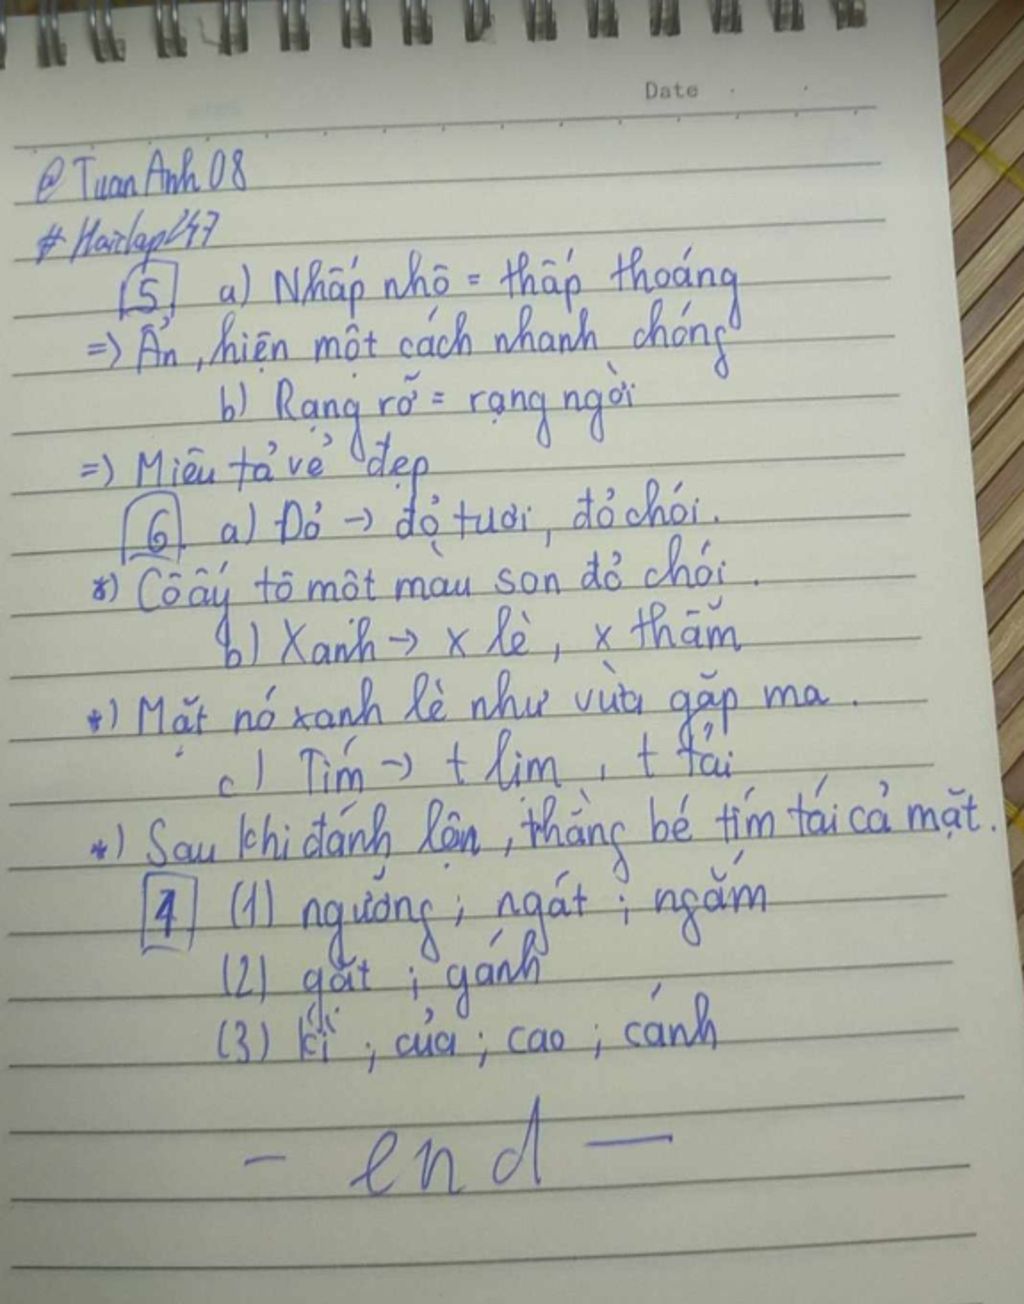 Date
@TuanAnh08
#Haiclap247
5 a) Nhấp nhô = thấp thoáng
=> Ẩn, hiện một cách nhanh chóng
b) Rạng rỡ = rạng ngời
=> Miêu tả vẻ đẹp
6 a) Đỏ -> đỏ tươi, đỏ chói.
*) Cô ấy tô một màu son đỏ chói.
b) Xanh -> x lè, x thẫm
*) Mặt nó xanh lè như vừa gặp ma.
c) Tím -> t lim, t tái
*) Sau khi đánh lộn, thằng bé tím tái cả mặt.
1 (1) ngưỡng; ngát; ngắm
(2) gặt; gánh
(3) kì; của; cao; cánh
- end -